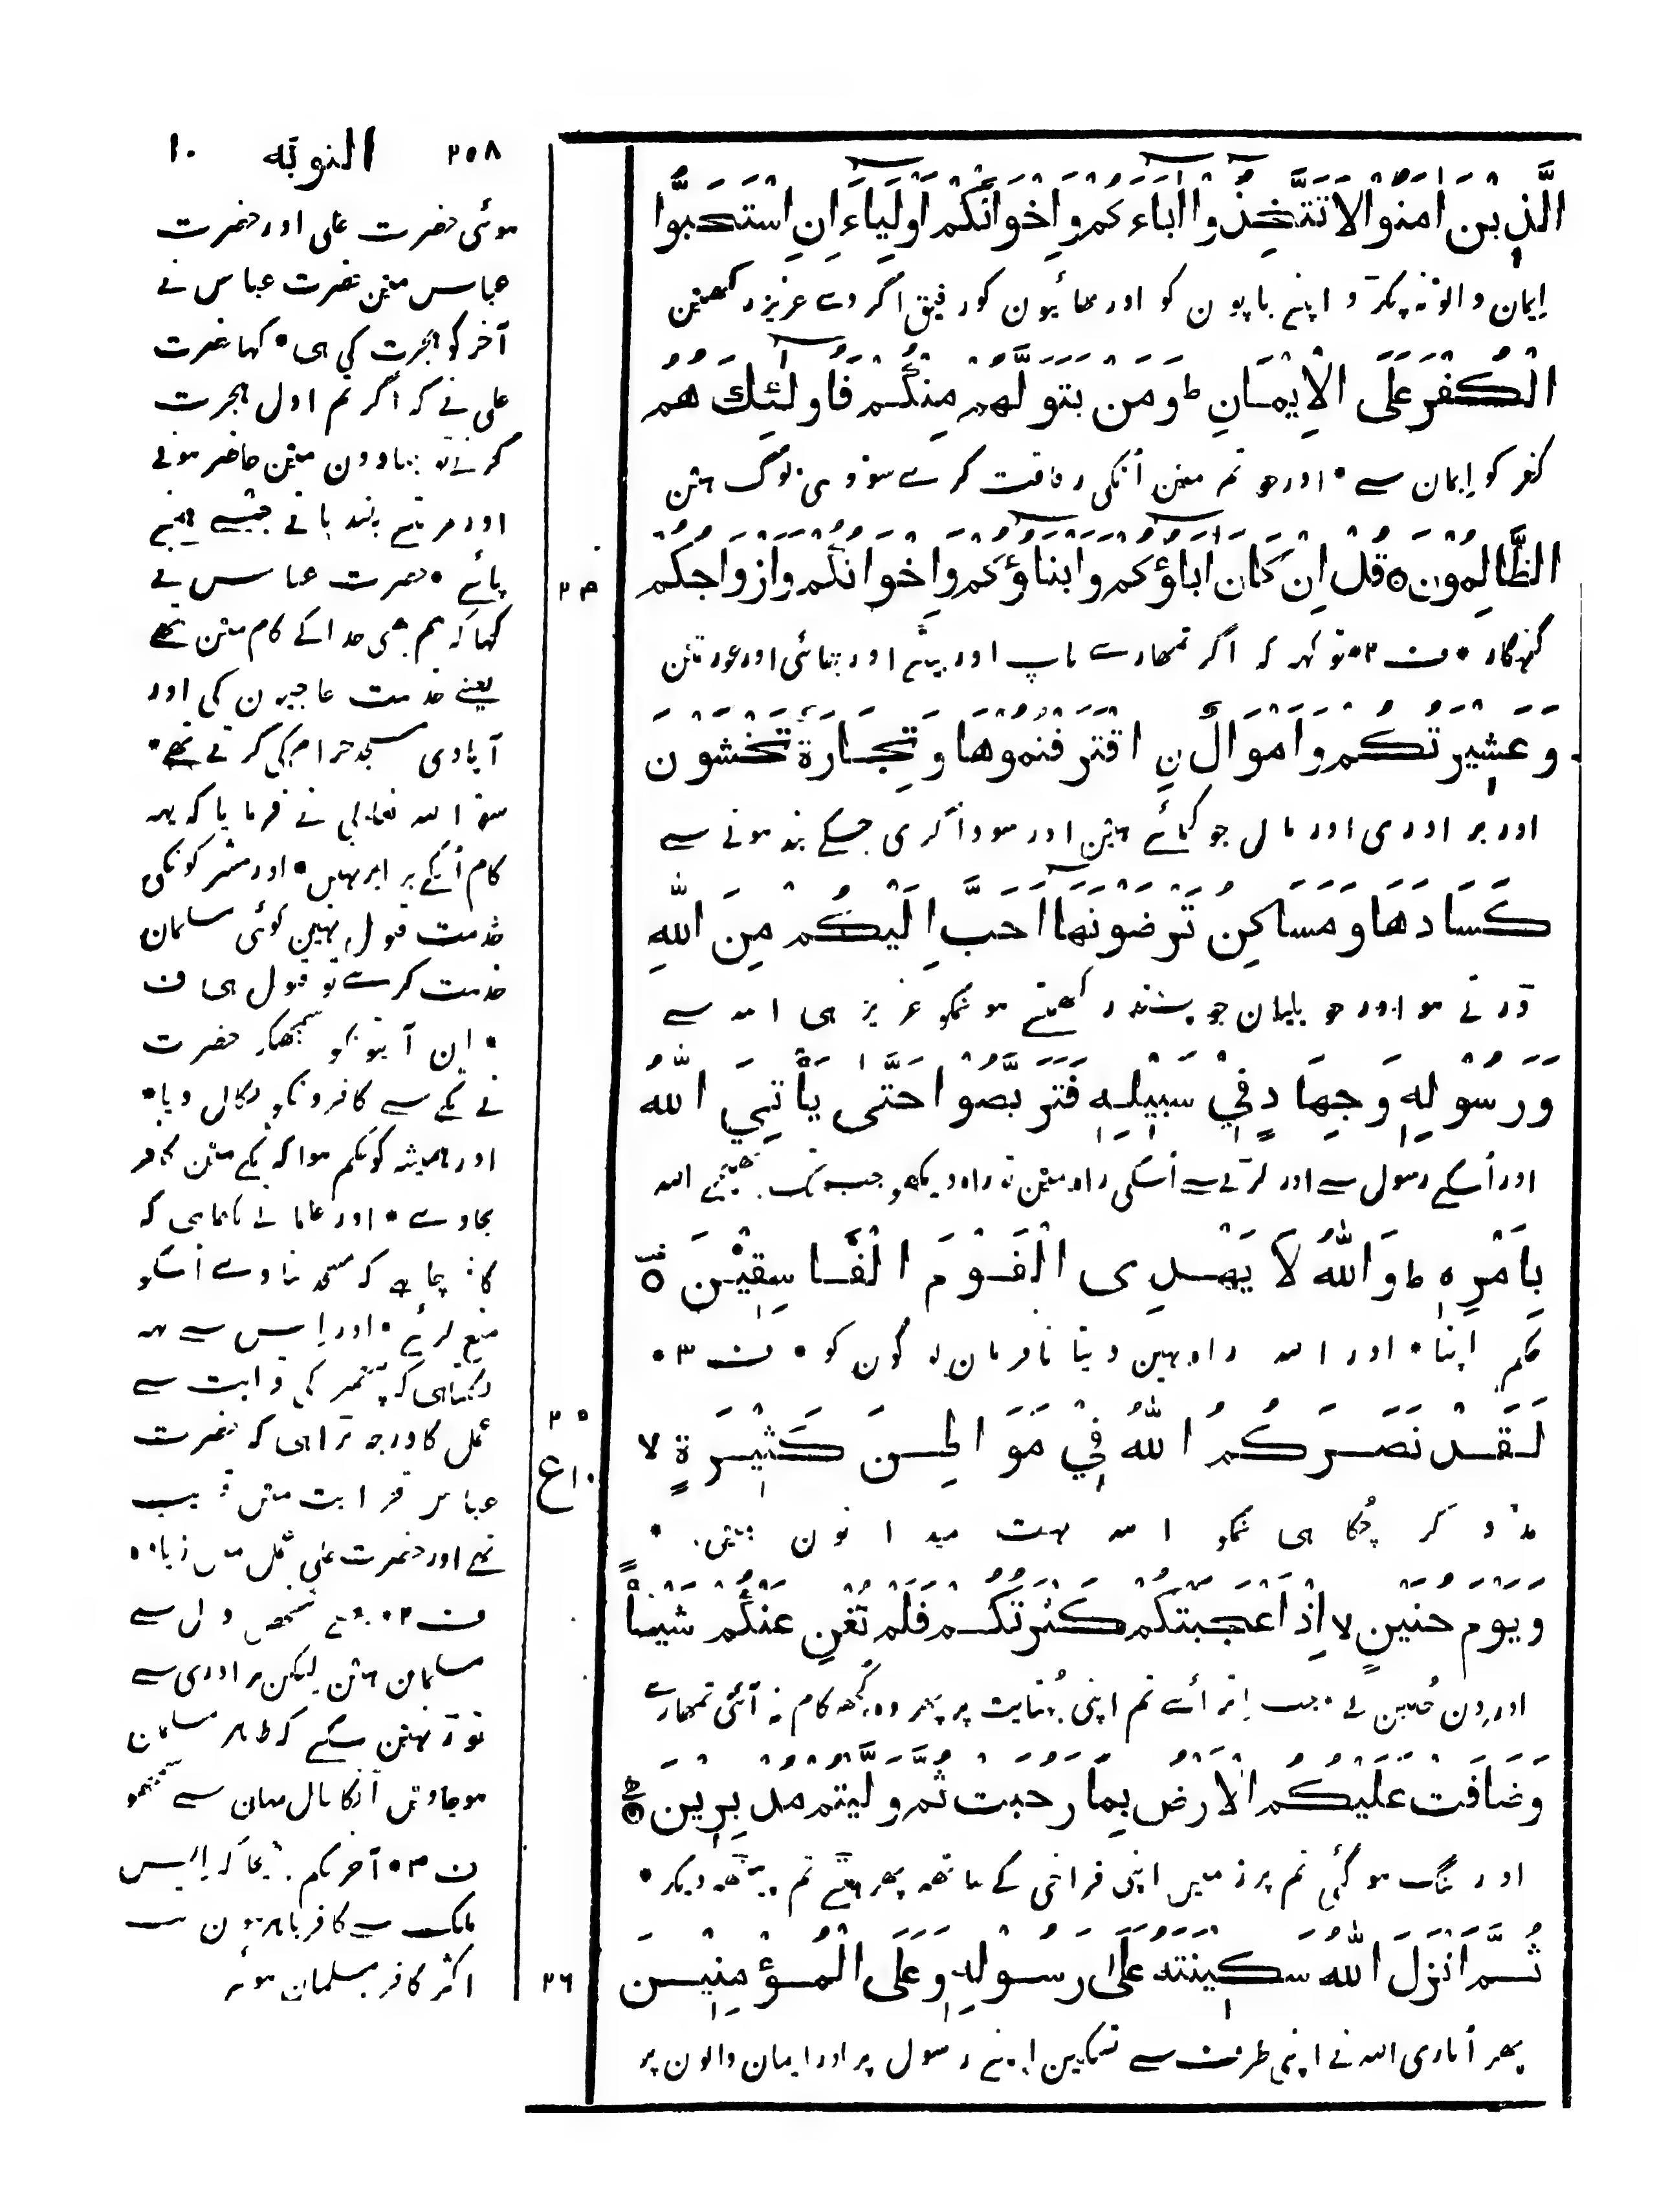 ۲۵۸ التوبة ۱۰
الَّذِينَ اٰمَنُوا لَا تَتَّخِذُوا اٰبَاءَكُمْ وَاِخْوَانَكُمْ اَوْلِيَاءَ اِنِ اسْتَحَبُّوا
ایمان والو نہ پکڑو اپنے باپون کو اور بھائیون کو رفیق اگر وے عزیز رکھین
الْكُفْرَ عَلَى الْاِيْمَانِ ط وَمَنْ يَتَوَلَّهُمْ مِنْكُمْ فَاُولٰئِكَ هُمُ
کفر کو ایمان سے • اور جو تم مین اُنکی رفاقت کرے سو وہی لوگ ہین
الظَّالِمُونَ ه قُلْ اِنْ كَانَ اٰبَاؤُكُمْ وَاَبْنَاؤُكُمْ وَاِخْوَانُكُمْ وَاَزْوَاجُكُمْ
گنہگار • ف ۲ • تو کہہ کہ اگر تمھارے باپ اور بیٹے اور بھائی اور عورتین
وَعَشِيْرَتُكُمْ وَاَمْوَالُ نِ اقْتَرَفْتُمُوهَا وَتِجَارَةٌ تَخْشَوْنَ
اور برادری اور مال جو کمائے ہین اور سوداگری جسکے بند ہونے سے
كَسَادَهَا وَمَسَاكِنُ تَرْضَوْنَهَا اَحَبَّ اِلَيْكُمْ مِنَ اللّٰهِ
ڈرتے ہو اور حویلیان جو پسند رکھتے ہو تمکو عزیز ہی اللہ سے
وَرَسُوْلِهٖ وَجِهَادٍ فِيْ سَبِيْلِهٖ فَتَرَبَّصُوْا حَتّٰى يَأْتِيَ اللّٰهُ
اور اُسکے رسول سے اور لڑنے سے اُسکی راہ مین تو راہ دیکھو جب تک بھیجے اللہ
بِاَمْرِهٖ ط وَاللّٰهُ لَا يَهْدِى الْقَوْمَ الْفَاسِقِيْنَ ه
حکم اپنا • اور اللہ راہ نہین دیتا نافرمان لوگون کو • ف ۳ •
لَقَدْ نَصَرَكُمُ اللّٰهُ فِيْ مَوَاطِنَ كَثِيْرَةٍ لا
مدد کر چُکا ہی تمکو اللہ بہت میدانون مین •
وَيَوْمَ حُنَيْنٍ لا اِذْ اَعْجَبَتْكُمْ كَثْرَتُكُمْ فَلَمْ تُغْنِ عَنْكُمْ شَيْئًا
اور دن حُنین کے • جب اِترائے تم اپنی بُہتایت پر پھر وہ کُچھ کام نہ آئی تمھارے
وَضَاقَتْ عَلَيْكُمُ الْاَرْضُ بِمَا رَحُبَتْ ثُمَّ وَلَّيْتُمْ مُدْبِرِيْنَ ه
اور تنگ ہو گئی تم پر زمین اپنی فراخی کے ساتھ پھر ہٹے تم پیٹھ دیکر •
ثُمَّ اَنْزَلَ اللّٰهُ سَكِيْنَتَهٗ عَلٰى رَسُوْلِهٖ وَعَلَى الْمُؤْمِنِيْنَ
پھر اُتاری اللہ نے اپنی طرف سے تسکین اپنے رسول پر اور ایمان والون پر
۲۴
۲۵
ع ۱۰
۲۶
ہوئی حضرت علی اور حضرت
عباس مین حضرت عباس نے
آخر کو ہجرت کی ہی • کہا حضرت
علی نے کہ اگر تم اول ہجرت
کرتے تو جہادون مین حاضر ہوتے
اور مرتبے بلند پاتے جیسے ہمنے
پائے • حضرت عباس نے
کہا کہ ہم بھی خدا کے کام مین تھے
یعنے خدمت حاجیون کی اور
آبادی مسجد حرام کی کرتے تھے •
سو اللہ تعالی نے فرمایا کہ یہہ
کام اُنکے برابر نہین • اور مشرکونکی
خدمت قبول نہین کوئی مسلمان
خدمت کرے تو قبول ہی ف
• اِن آیتونکو سمجھکر حضرت
نے مکے سے کافرونکو نکال دیا •
اور ہمیشہ کو حکم ہوا کہ مکے مین کافر
نجاوے • اور علما نے لکھا ہی کہ
کافر چاہے کہ مسجد بناوے اُسکو
منع کرئے • اور اِس سے یہہ
نکلتا ہی کہ پیغمبر کی قرابت سے
عمل کا درجہ بڑا ہی کہ حضرت
عباس قرابت مین قریب
تھے اور حضرت علی عمل مین زیادہ
ف ۲ • بعضے شخص دل سے
مسلمان ہین لیکن برادری سے
توڑ نہین سکتے کہ ظاہر مسلمان
ہوجاوین
ف ۳ • آخر حکم بھیجا کہ اِس
ملک سے کافر باہر ہون
اکثر کافر مسلمان ہوئے